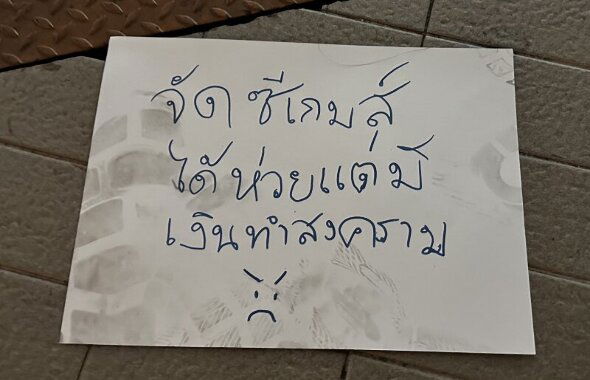 จัด ซีเกมส์
ได้ห่วยแต่มี
เงินทำสงคราม